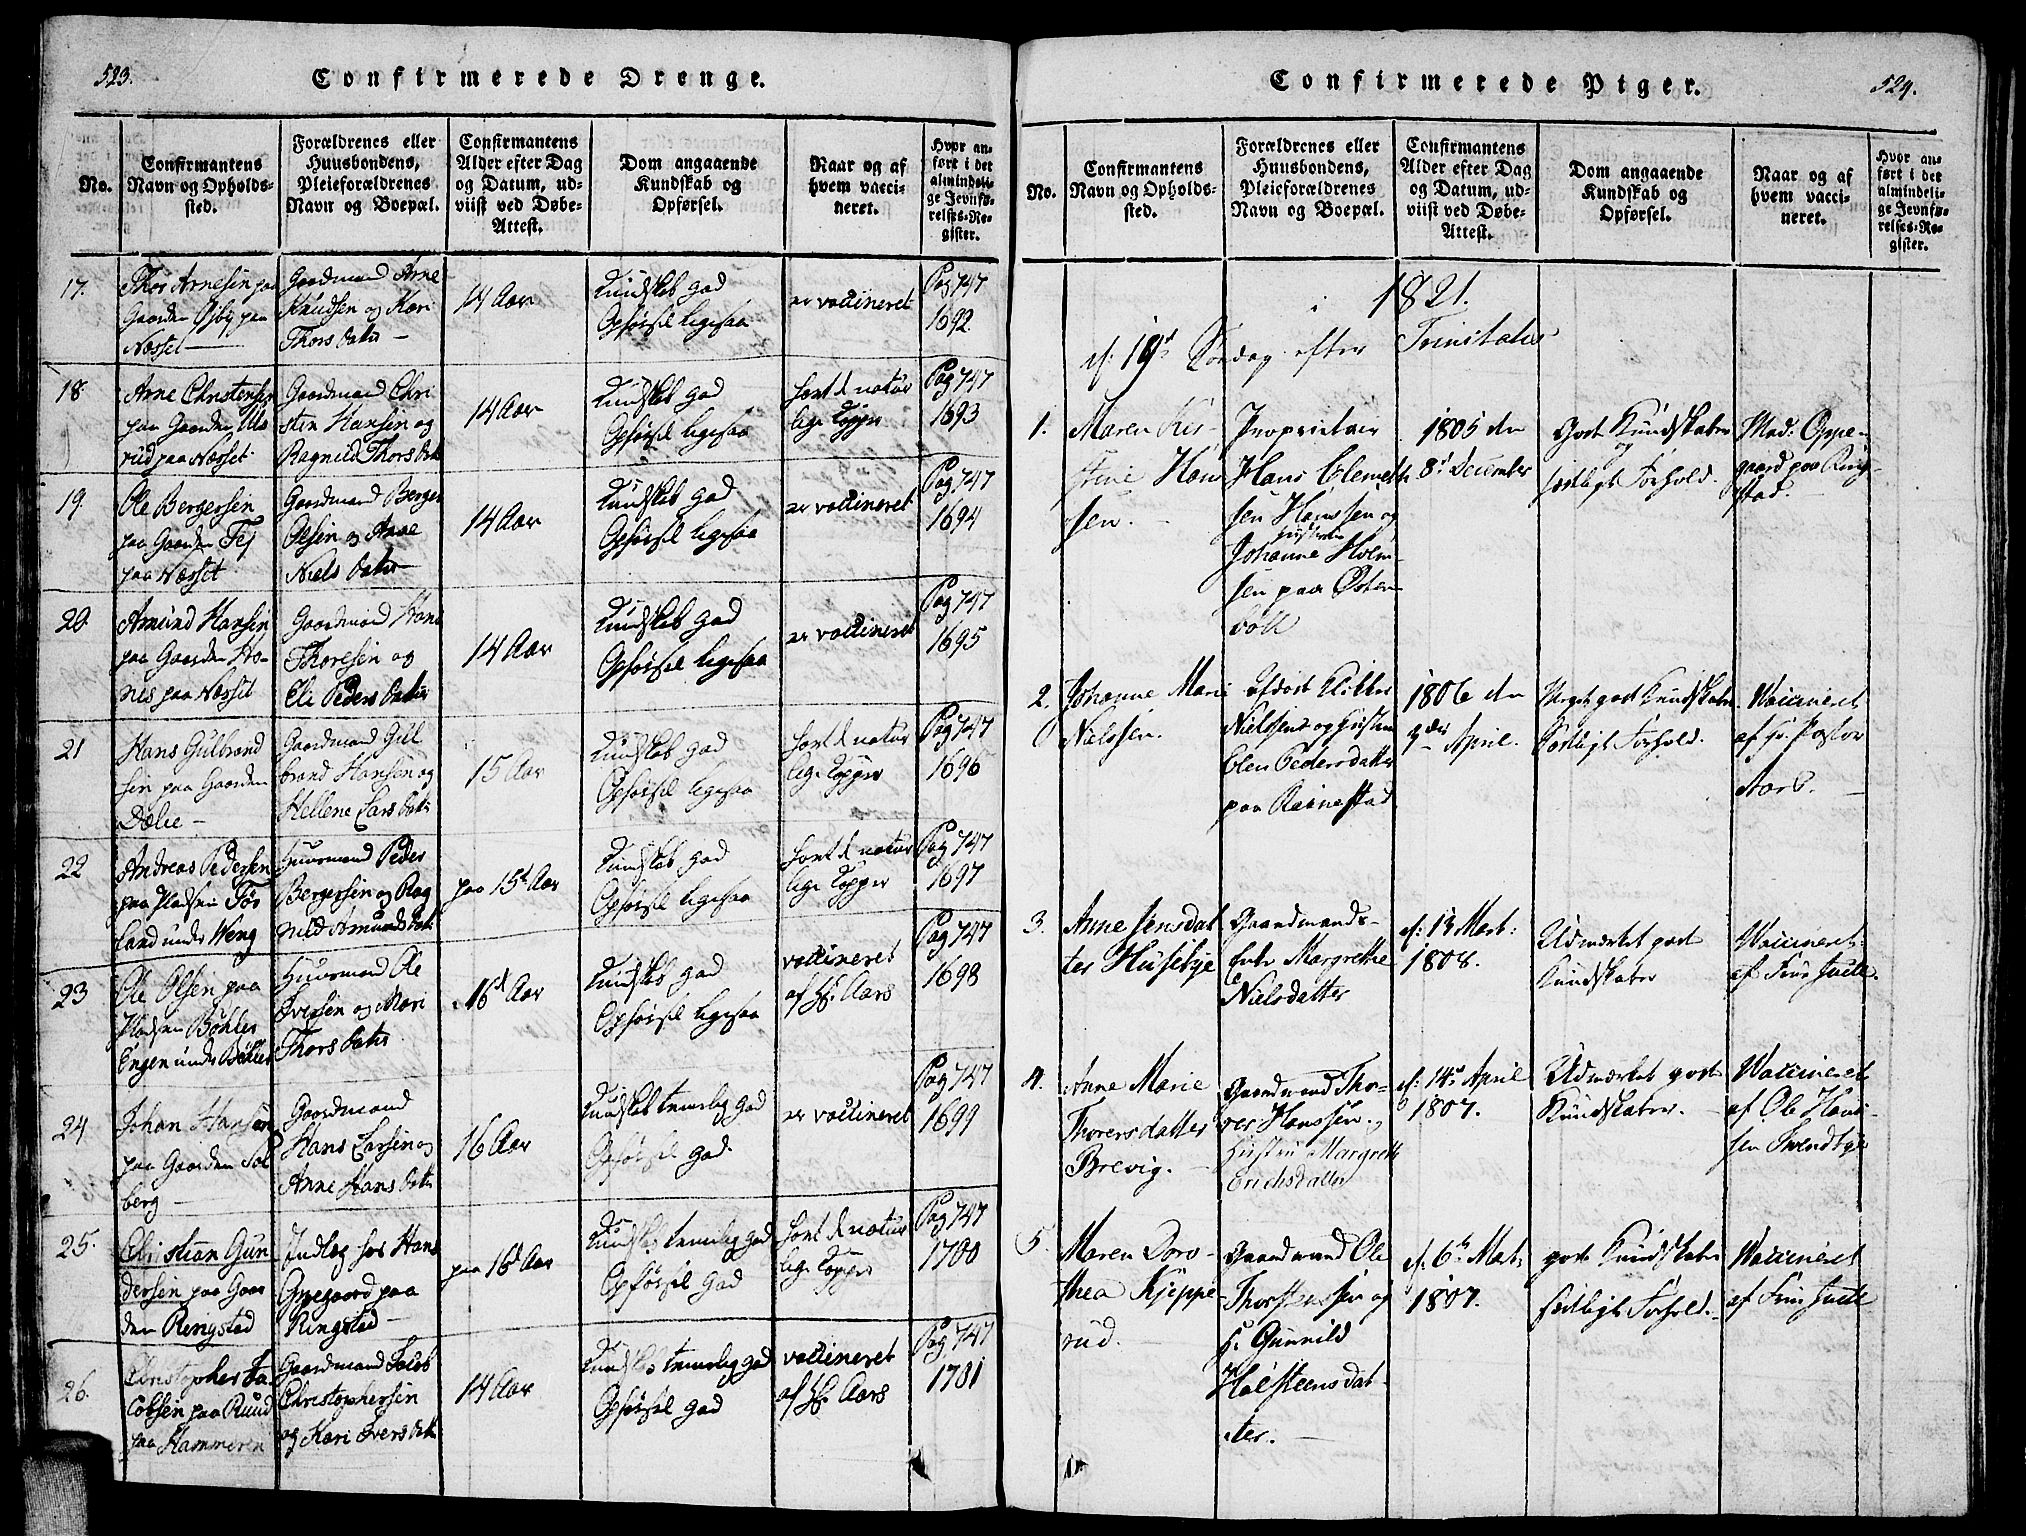 523.
Confirmerede Drenge.
No.
Confirmantens
Navn og Opholds-
sted.
Forældrenes eller
Huusbondens,
Pleieforældrenes
Navn og Boepæl.
Confirmantens
Alder efter Dag
og Datum, ud-
viist ved Døbe-
Attest.
Dom angaaende
Kundskab og
Opførsel.
Naar og af
hvem vacci-
neret.
Hvor an-
ført i det
almindeli-
ge Jevnfø-
relses-Re-
gister.
17.
Thor Arnesen paa
Gaarden Ojby paa
Næsset
Gaardmand Arne
Knudsen og Kari
Thors datter
14 Aar
Kundskab god
Opførsel ligesaa
er vaccineret
Pag 747
1692
18.
Arne Christensen
paa Gaarden Uls
rud paa Næsset
Gaardmand Chri
sten Hansen og
Ragnild Thors dat
14 Aar
Kundskab god
Opførsel ligesaa
havt de natur
lige Kopper
Pag 747
1693
19.
Ole Bergersen
paa Gaarden Fej
paa Næsset
Gaardmand Berger
Olsen og Anne
Niels datter
14 Aar
Kundskab god
Opførsel ligesaa
er vaccineret
Pag 747
1694
20
Amund Hansen
paa Gaarden Ho-
nes paa Næsset
Gaardmand Hans
Thoresen og
Eli Peders datter
14 Aar
Kundskab god
Opførsel ligesaa
er vaccineret
Pag 747
1695
21
Hans Gulbrand
sen paa Gaarden
Dælie
Gaardmand Gul
brand Hansen og
Hellene Lars datr
15 Aar
Kundskab god
Opførsel ligesaa
havt de natur
lige Kopper
Pag 747
1696
22
Andreas Pedersen
paa Pladsen Tøs
land under Weng
Huusmand Peder
Bergersen og Rag
nild Amunds datr
paa 15d Aar
Kundskab god
Opførsel ligesaa
havt de natur
lige Kopper
Pag 747
1697
23
Ole Olsen paa
Pladsen Bøhler
Engen under Bøhler
Huusmand Ole
Iversen og Mari
Thors datr
16d Aar
Kundskab god
Opførsel ligesaa
vaccineret
af Hr. Aars
Pag 747
1698
24
Johan Hansen
paa Gaarden Sol
berg
Gaardmand
Hans Larsen og
Anne Hans datr
16 Aar
Kundskab temelig god
Opførsel god.
er vaccineret
Pag 747
1699
25.
Christian Gun
dersen paa Gaar
den Ringstad
Indlog hos Hans
Oppegaard paa
Ringstad
paa 16d Aar
Kundskab temelig god
Opførsel god
havt de natur
lige Kopper
Pag 747
1700
26.
Christopher Ja
cobsen paa Ruud
paa Hammeren
Gaardmand Jacob
Christophersen
og Kari Ivers datr
14 Aar
Kundskab temelig god
Opførsel god
vaccineret
af Hr. Aars
Pag 747
1701
Confirmerede Piger.
524.
No.
Confirmantens
Navn og Opholds-
sted.
Forældrenes eller
Huusbondens,
Pleieforældrenes
Navn og Boepæl.
Confirmantens
Alder efter Dag
og Datum, ud-
viist ved Døbe-
Attest.
Dom angaaende
Kundskab og
Opførsel.
Naar og af
hvem vacci-
neret.
Hvor an-
ført i det
almindeli-
ge Jevnfø-
relses-Re-
gister.
i 1821.
d: 19d Søndag efter Trinitatis
1.
Maren Kir-
stine Hans
sen.
Proprietair
Hans Clemet
sen Hanssen og
hustrue
Johanne Holm
sen paa Østen
voll
1805 den
8d December
godt Kundskaber
og
sædligt Forhold.
Mad: Oppe-
gaard paa Ring-
stad.
2.
Johanne Marie
Nielssen.
Afdøde Klokker
Nielssens og hustrue
Elen Pedersdatter
paa Ravnestad
1806 den
9der April.
Meget godt Kundskaber
Sædligt Forhold.
Waccineret
af Hr. Pastor
Aars.
3.
Anne Jensdat
ter Husebye
Gaardmands-
Enke Margrethe
Nielsdatter
d: 13 Mart:
1808.
Udmærket godt
Kundskaber
Waccineret
af Frue Juell.
4.
Anne Marie
Thorersdatter
Brevig.
Gaardmand Tho-
rer Hanssen og
Hustru Margreth
Erichsdatter
d: 14d April
1807.
Udmærket godt
Kundskaber.
Waccineret
af Ole Han-
sen Tvendbye
5.
Maren Doro-
thea Kjeppe-
rud.
Gaardmand Ole
Thorstenssen og
H. Gunnild
Holsteensdat-
ter.
d: 6te Mart:
1807.
godt Kundskaber
sædligt Forhold.
Waccineret
af Frue Juell